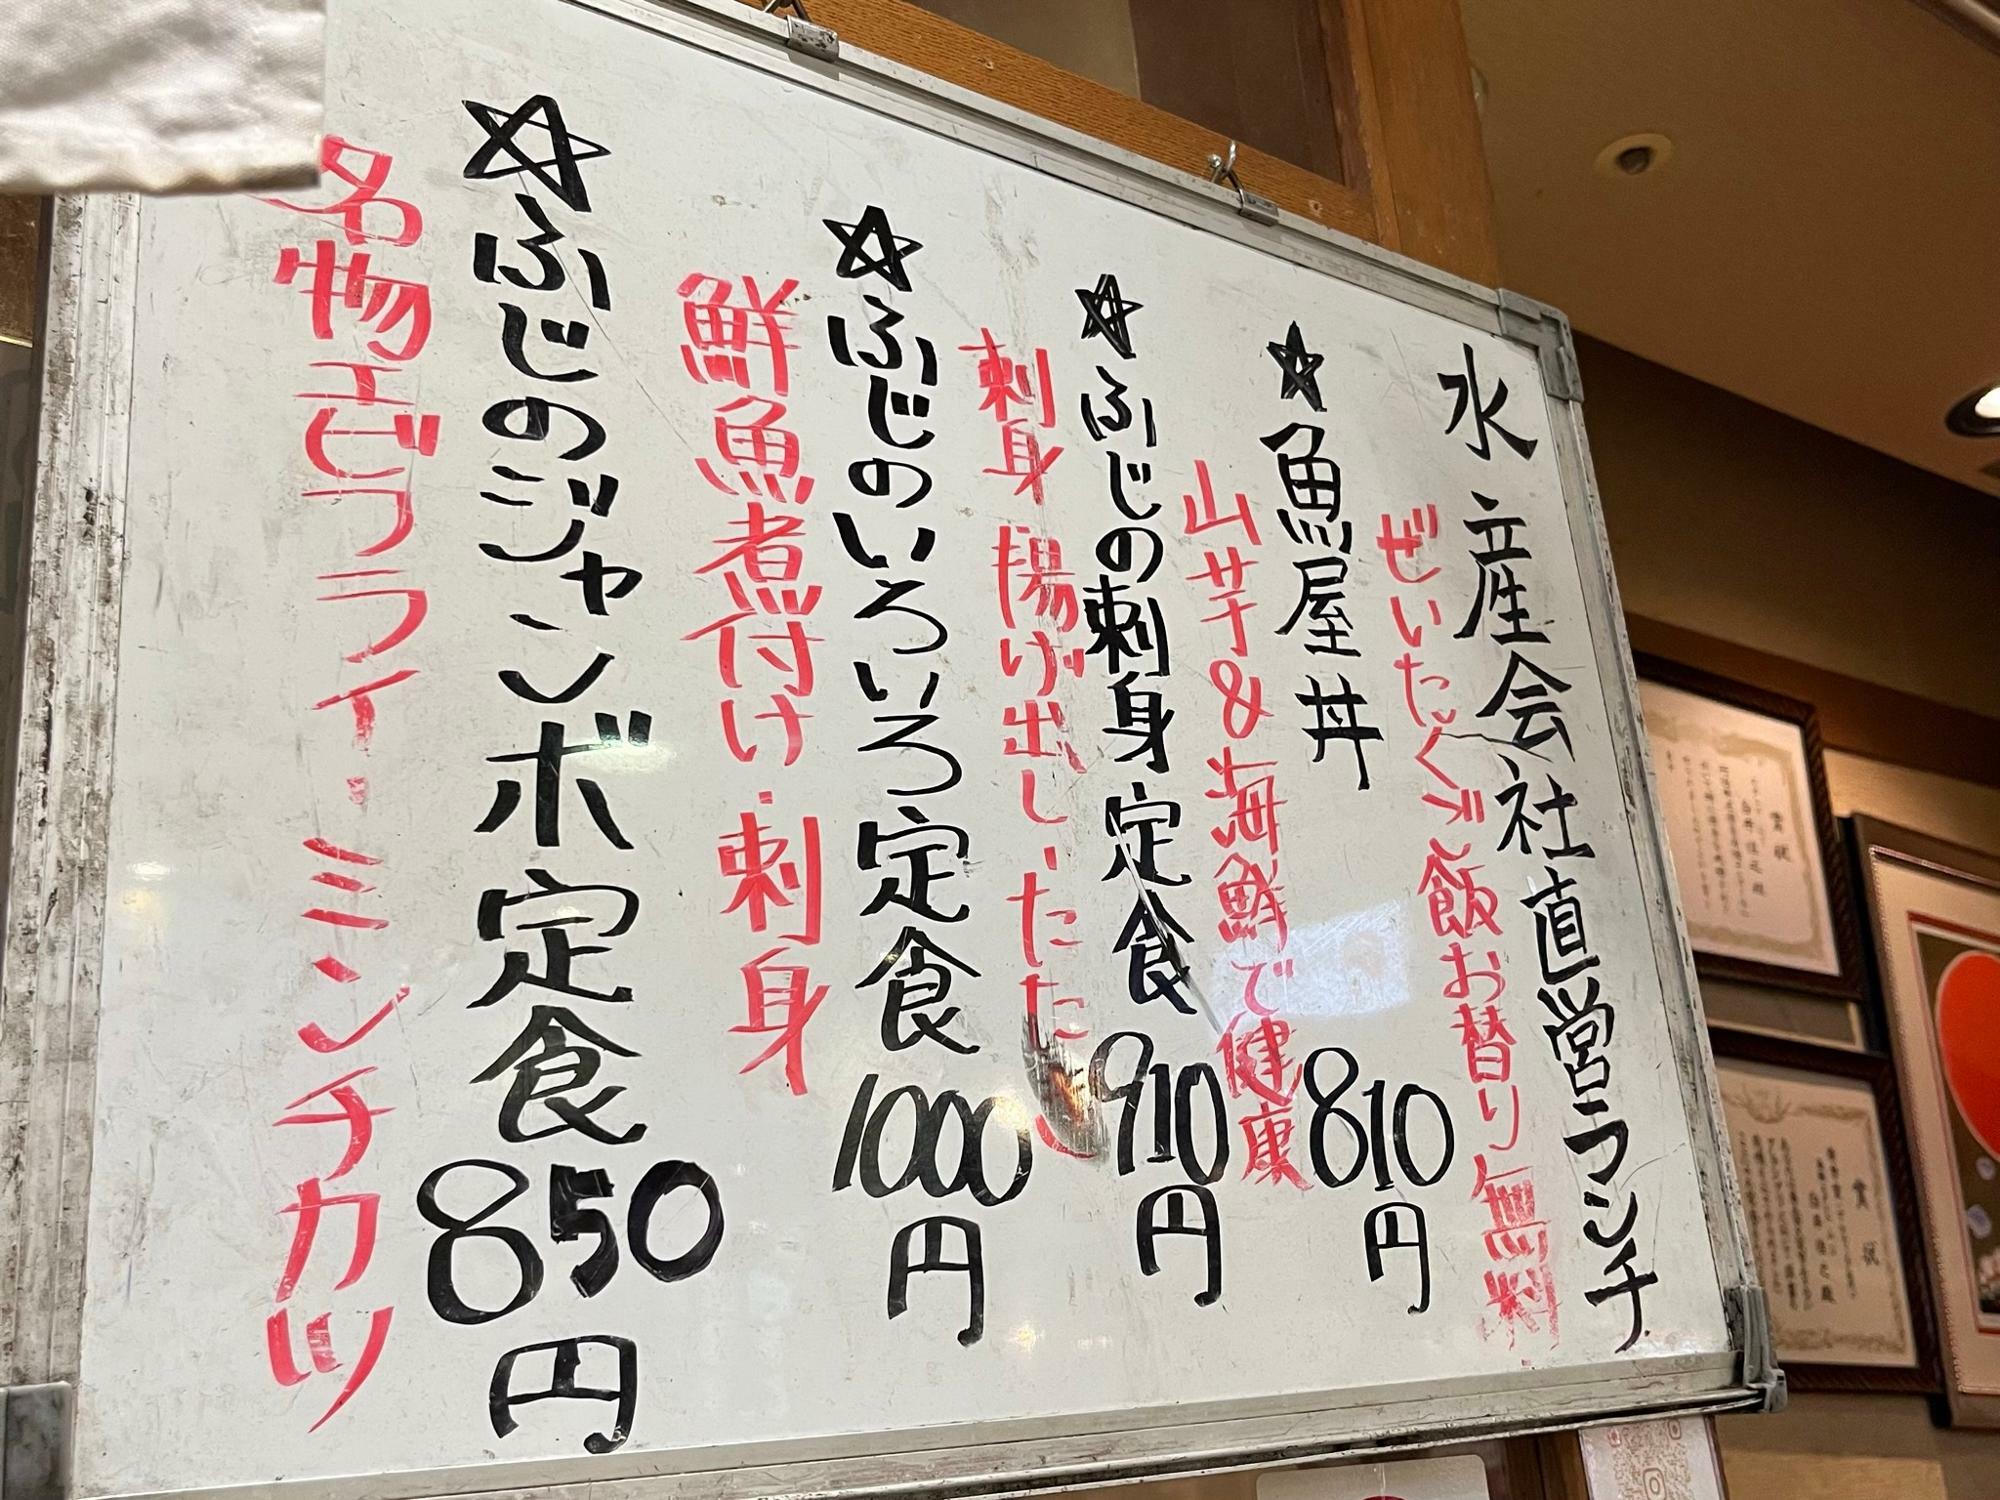 水産会社直営ランチ
ぜいたくご飯お替り無料
☆魚屋丼 810円
山芋&海鮮で健康
☆ふじの刺身定食 910円
刺身・揚げ出し・たたき
☆ふじのいろいろ定食 1000円
鮮魚煮付け・刺身
☆ふじのジャンボ定食 850円
名物エビフライ・ミンチカツ
賞状
賞状